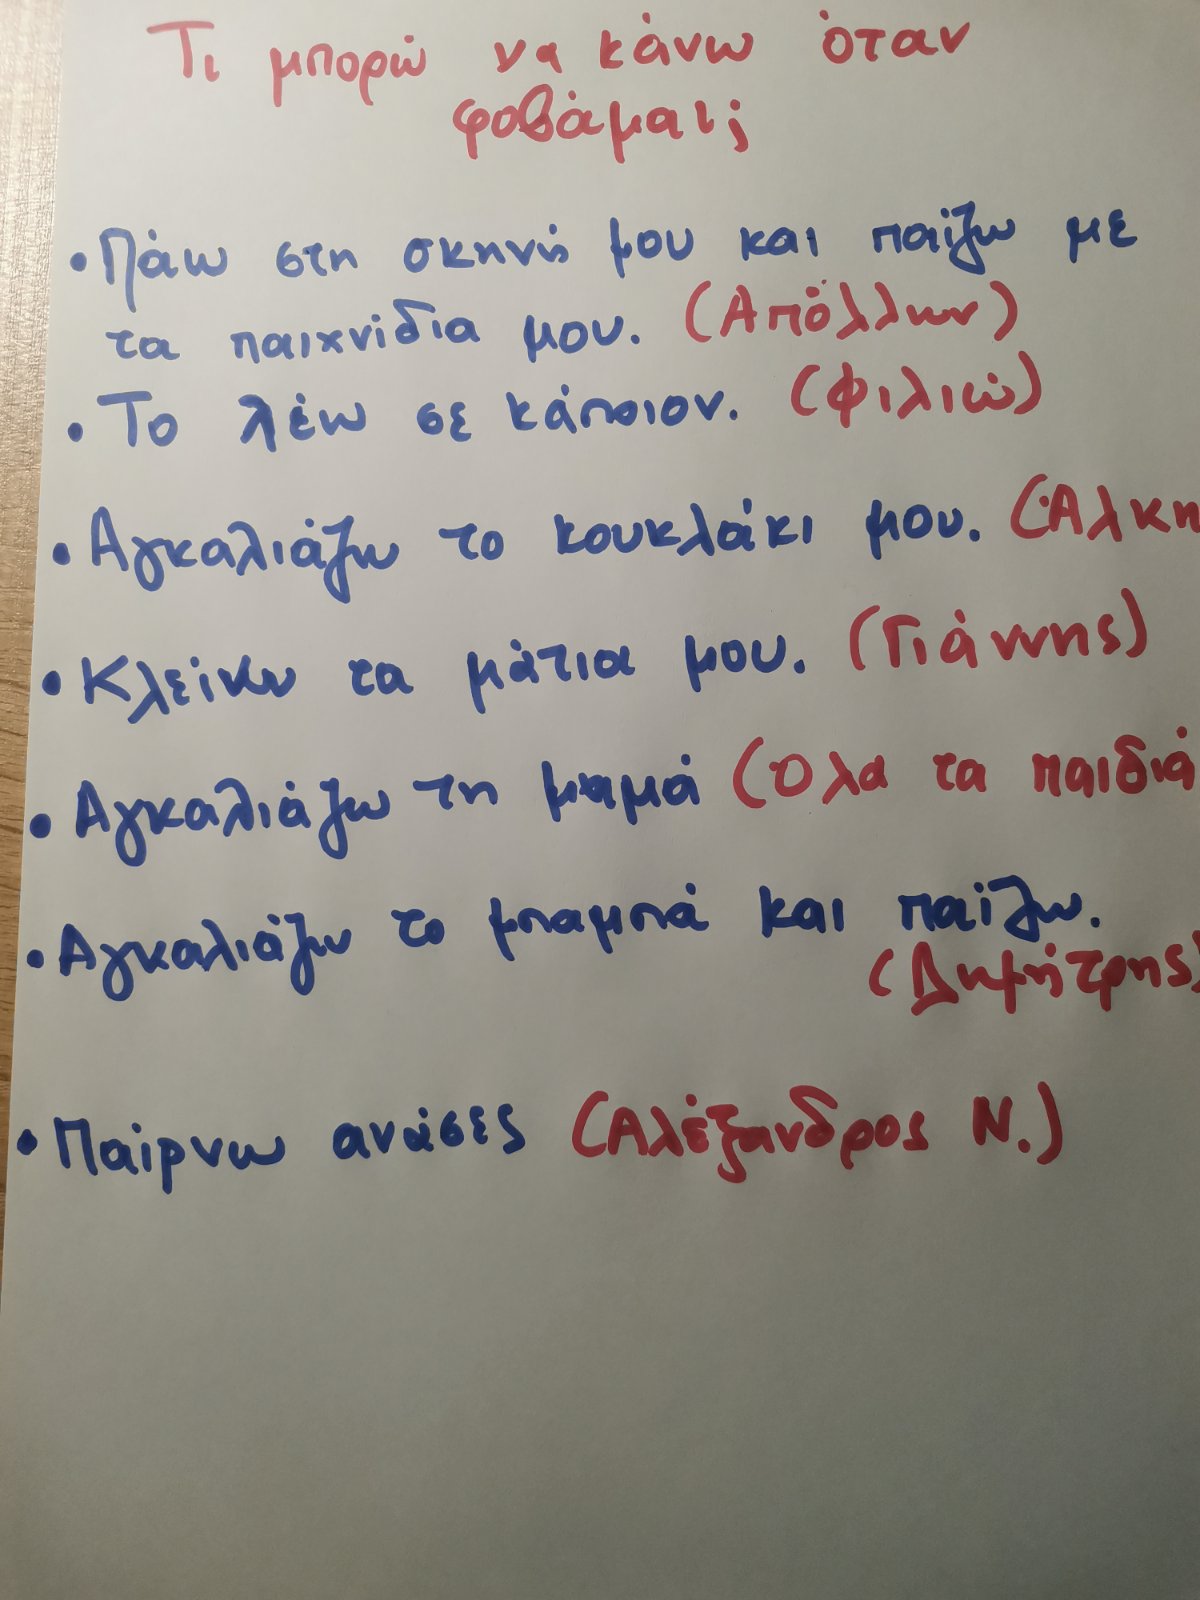 Τι μπορώ να κάνω όταν
φοβάμαι;
• Πάω στη σκηνή μου και παίζω με
τα παιχνίδια μου. (Απόλλων)
• Το λέω σε κάποιον. (Φιλιώ)
• Αγκαλιάζω το κουκλάκι μου. (Άλκη
• Κλείνω τα μάτια μου. (Γιάννης)
• Αγκαλιάζω τη μαμά (Όλα τα παιδιά
• Αγκαλιάζω το μπαμπά και παίζω.
(Δημήτρης)
• Παίρνω ανάσες (Αλέξανδρος Ν.)